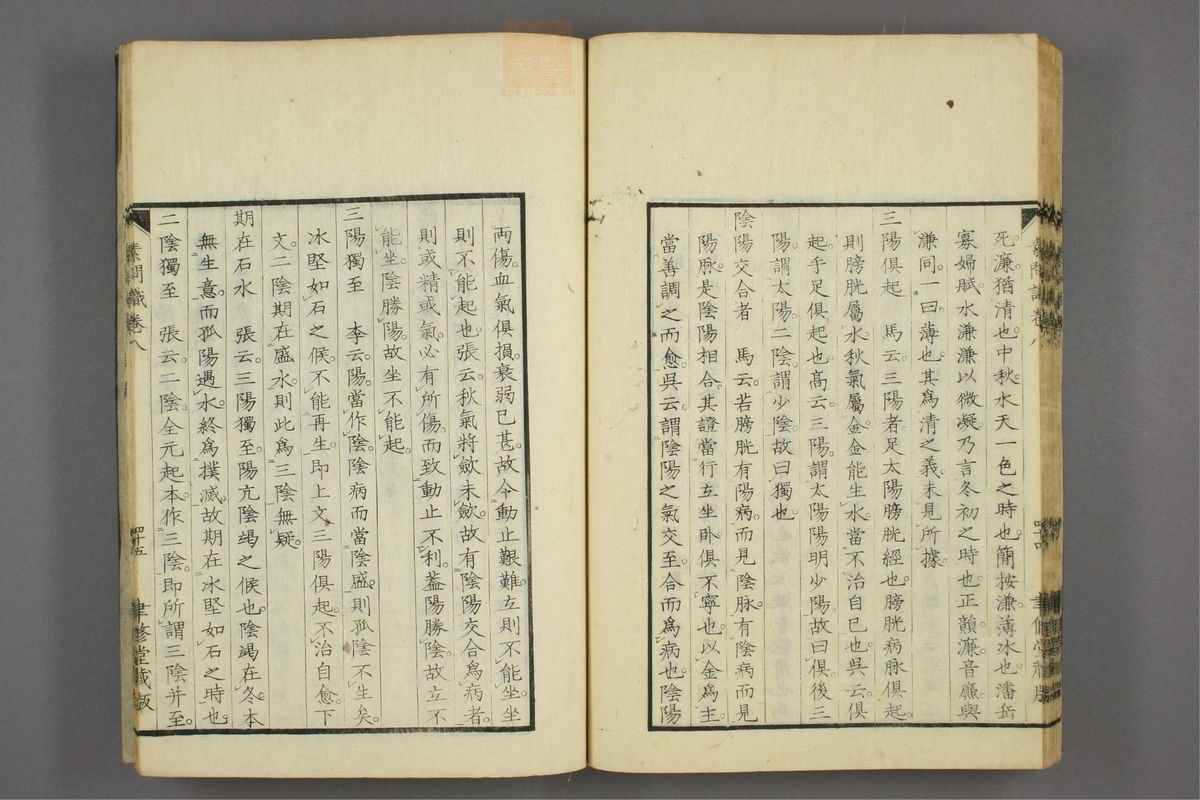 死濂猶清也中秋水天一色之時也簡按濂薄氷也潘岳
寡婦賦水濂濂以微凝乃言冬初之時也正韻濂音廉與
濂同一曰薄也其爲清之義未見所據
三陽俱起　馬云三陽者足太陽膀胱經也膀胱病脉俱起
則膀胱屬水秋氣屬金金能生水當不治自已也吳云俱
起手足俱起也高云三陽謂太陽陽明少陽故曰俱後三
陽謂太陽二陰謂少陰故曰獨也
陰陽交合者　馬云若膀胱有陽病而見陰脉有陰病而見
陽脉是陰陽相合其證當行立坐卧俱不寧也以金爲主
當善調之而愈吳云謂陰陽之氣交至合而爲病也陰陽
素問識卷八
四十四
聿修堂藏版
両傷血氣俱損衰弱已甚故令動止艱難立則不能坐坐
則不能起也張云秋氣將斂未斂故有陰陽交合爲病者
則或精或氣必有所傷而致動止不利蓋陽勝陰故立不
能坐陰勝陽故坐不能起
三陽獨至　李云陽當作陰陰病而當陰盛則孤陰不生矣
冰堅如石之候不能再生即上文三陽俱起不治自愈下
文二陰期在盛水則此爲三陰無疑
期在石水　張云三陽獨至陽亢陰竭之候也陰竭在冬本
無生意而孤陽遇水終爲撲滅故期在冰堅如石之時也
二陰獨至　張云二陰全元起本作三陰即所謂三陰并至
素問識卷八
四十五
聿修堂藏版
zysj.com.cn